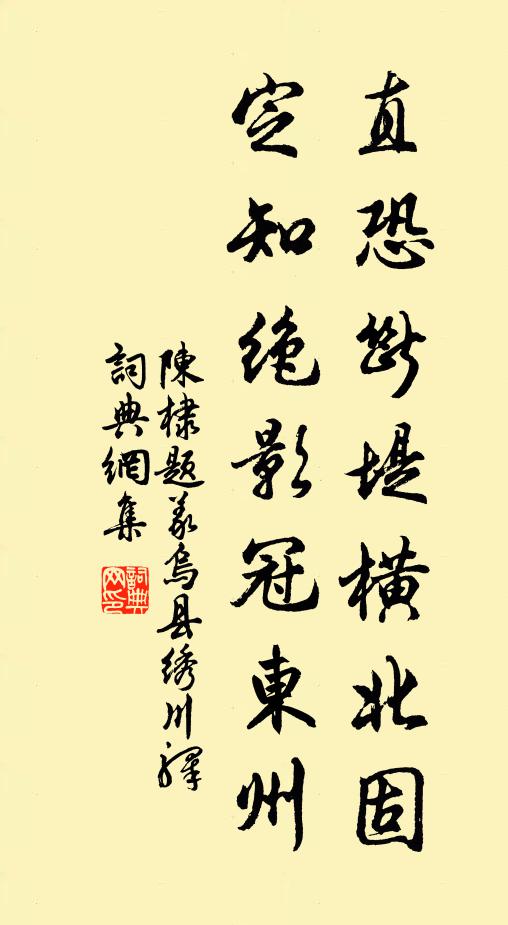 直恐斷堤橫北固
定知絕影冠東州
陳棣題義烏县绣川驛
詞典網集
詞典網印